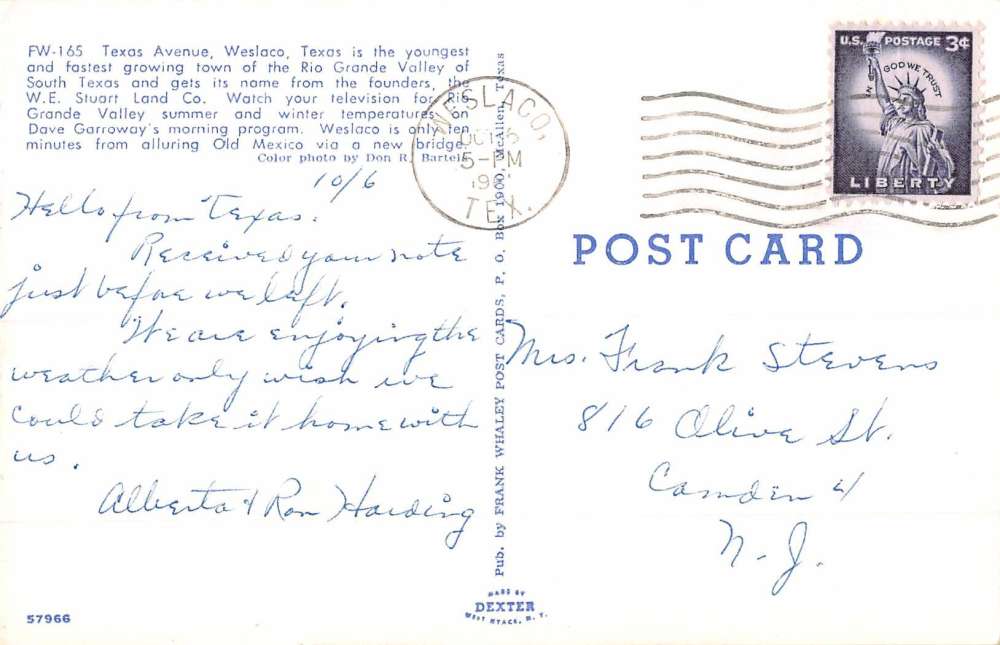 FW-165 Texas Avenue, Weslaco, Texas is the youngest
and fastest growing town of the Rio Grande Valley of
South Texas and gets its name from the founders, the
W.E. Stuart Land Co. Watch your television for Rio
Grande Valley summer and winter temperatures on
Dave Garroway's morning program. Weslaco is only ten
minutes from alluring Old Mexico via a new bridge.
Color photo by Don R. Bartels
10/6
Hello from Texas.
Received your note
just before we left.
We are enjoying the
weather only wish we
could take it home with
us.
Alberta & Ron Harding
57966
WESLACO,
OCT
5-PM
TEX.
Pub. by FRANK WHALEY POST CARDS, P. O. Box 1900, McAllen, Texas
MADE BY
DEXTER
WEST NYACK, N. Y.
U.S. POSTAGE 3¢
IN GOD WE TRUST
LIBERTY
POST CARD
Mrs. Frank Stevens
816 Olive St.
Camden 4
N. J.